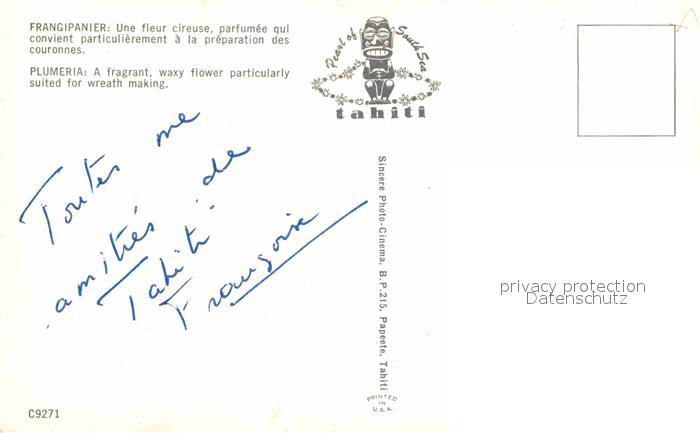 FRANGIPANIER: Une fleur cireuse, parfumée qui
convient particulièrement à la préparation des
couronnes.
PLUMERIA: A fragrant, waxy flower particularly
suited for wreath making.
Pearl of South Sea
tahiti
Toutes me
amitiés de
Tahiti
Françoise
Sincere Photo-Cinema, B.P.215, Papeete, Tahiti
PRINTED
IN
U.S.A.
privacy protection
Datenschutz
C9271